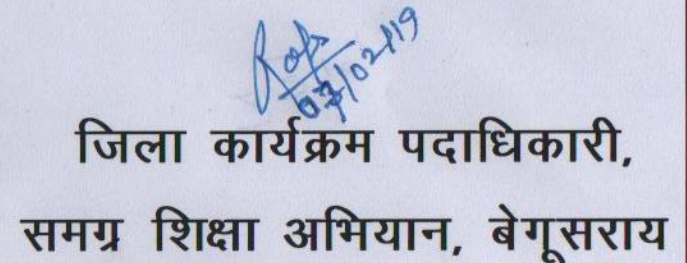 07/02/19
जिला कार्यक्रम पदाधिकारी,
समग्र शिक्षा अभियान, बेगूसराय